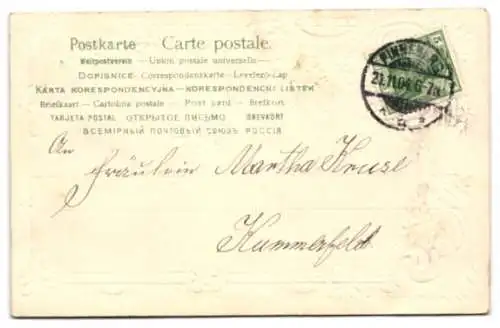 Postkarte — Carte postale.
Weltpostverein — Union postale universelle.
DOPISNICE — Correspondenzkarte — Levelező-Lap
KARTA KORESPONDENCYJNA — KORESPONDENČNI LISTEK
Briefkaart — Cartolina postale — Post card — Brefkort
TARJETA POSTAL ОТКРЫТОЕ ПИСЬМО BREVKORT
ВСЕМІРНЫЙ ПОЧТОВЫЙ СОЮЗЪ РОССІЯ
21.11.04. 6-7
5
An
Fräulein Martha Kruse
Kummerfeld